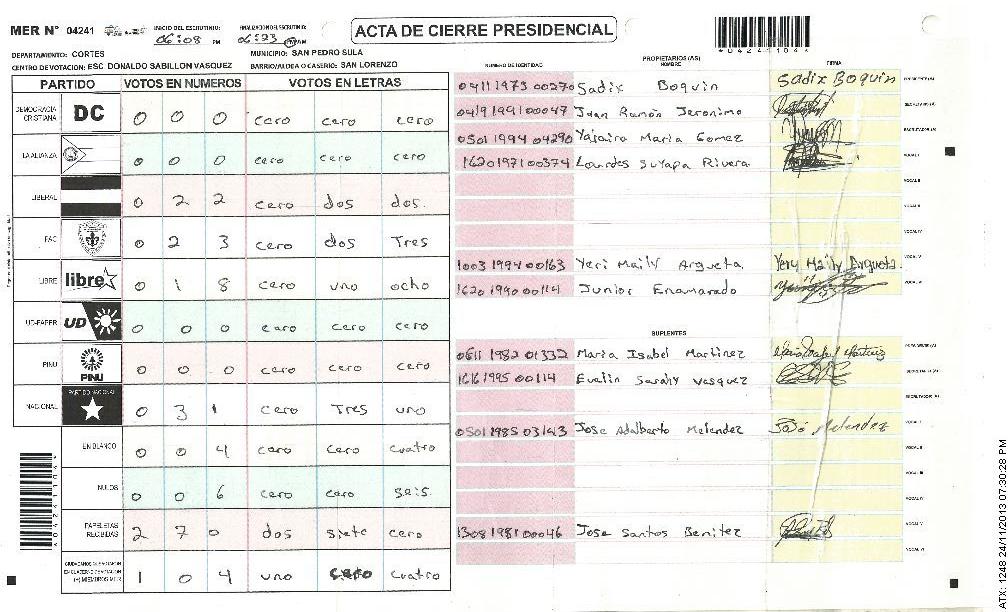 MER N° 04241 INICIO DEL ESCRUTINIO: 06:08 PM FINALIZACION DEL ESCRUTINIO: 06:23 AM
ACTA DE CIERRE PRESIDENCIAL
DEPARTAMENTO: CORTES MUNICIPIO: SAN PEDRO SULA
CENTRO DE VOTACION: ESC DONALDO SABILLON VASQUEZ BARRIO/ALDEA O CASERIO: SAN LORENZO
PARTIDO VOTOS EN NUMEROS VOTOS EN LETRAS
DEMOCRACIA CRISTIANA DC 0 0 0 cero cero cero
LA ALIANZA 0 0 0 cero cero cero
LIBERAL 0 2 2 cero dos dos.
FAC 0 2 3 cero dos Tres
LIBRE libre 0 1 8 cero uno ocho
UD-FAPER UD 0 0 0 cero cero cero
PINU PINU 0 0 0 cero cero cero
NACIONAL PARTIDO NACIONAL 0 3 1 cero Tres uno
EN BLANCO 0 0 4 cero cero cuatro
NULOS 0 0 6 cero cero seis
PAPELETAS RECIBIDAS 2 7 0 dos siete cero
CIUDADANOS QUE VOTARON
(+) MIEMBROS MER 1 0 4 uno cero cuatro
PROPIETARIOS (AS)
NUMERO DE IDENTIDAD NOMBRE FIRMA
0411 1973 00270 Sadix Boquin Sadix Boquin PRESIDENTE (A)
0419 1991 00047 Juan Ramón Jeronimo SECRETARIO (A)
0501 1994 04290 Yajaira Maria Gomez ESCRUTADOR (A)
1620 1971 00374 Lourdes Suyapa Rivera VOCAL I
VOCAL II
VOCAL III
VOCAL IV
1003 1994 00163 Yeri Maily Argueta Yery Maily Argueta. VOCAL V
1620 1990 00114 Junior Enamorado VOCAL VI
SUPLENTES
0611 1982 01332 Maria Isabel Martinez PRESIDENTE (A)
1616 1995 00114 Evelin Sarahy Vasquez SECRETARIO (A)
ESCRUTADOR (A)
0501 1985 03143 Jose Adalberto Melendez José Melendez VOCAL I
VOCAL II
VOCAL III
VOCAL IV
1308 1981 00046 Jose Santos Benitez VOCAL V
VOCAL VI
*04241104*
*04241104*
ATX: 1248 24/11/2013 07:30:28 PM